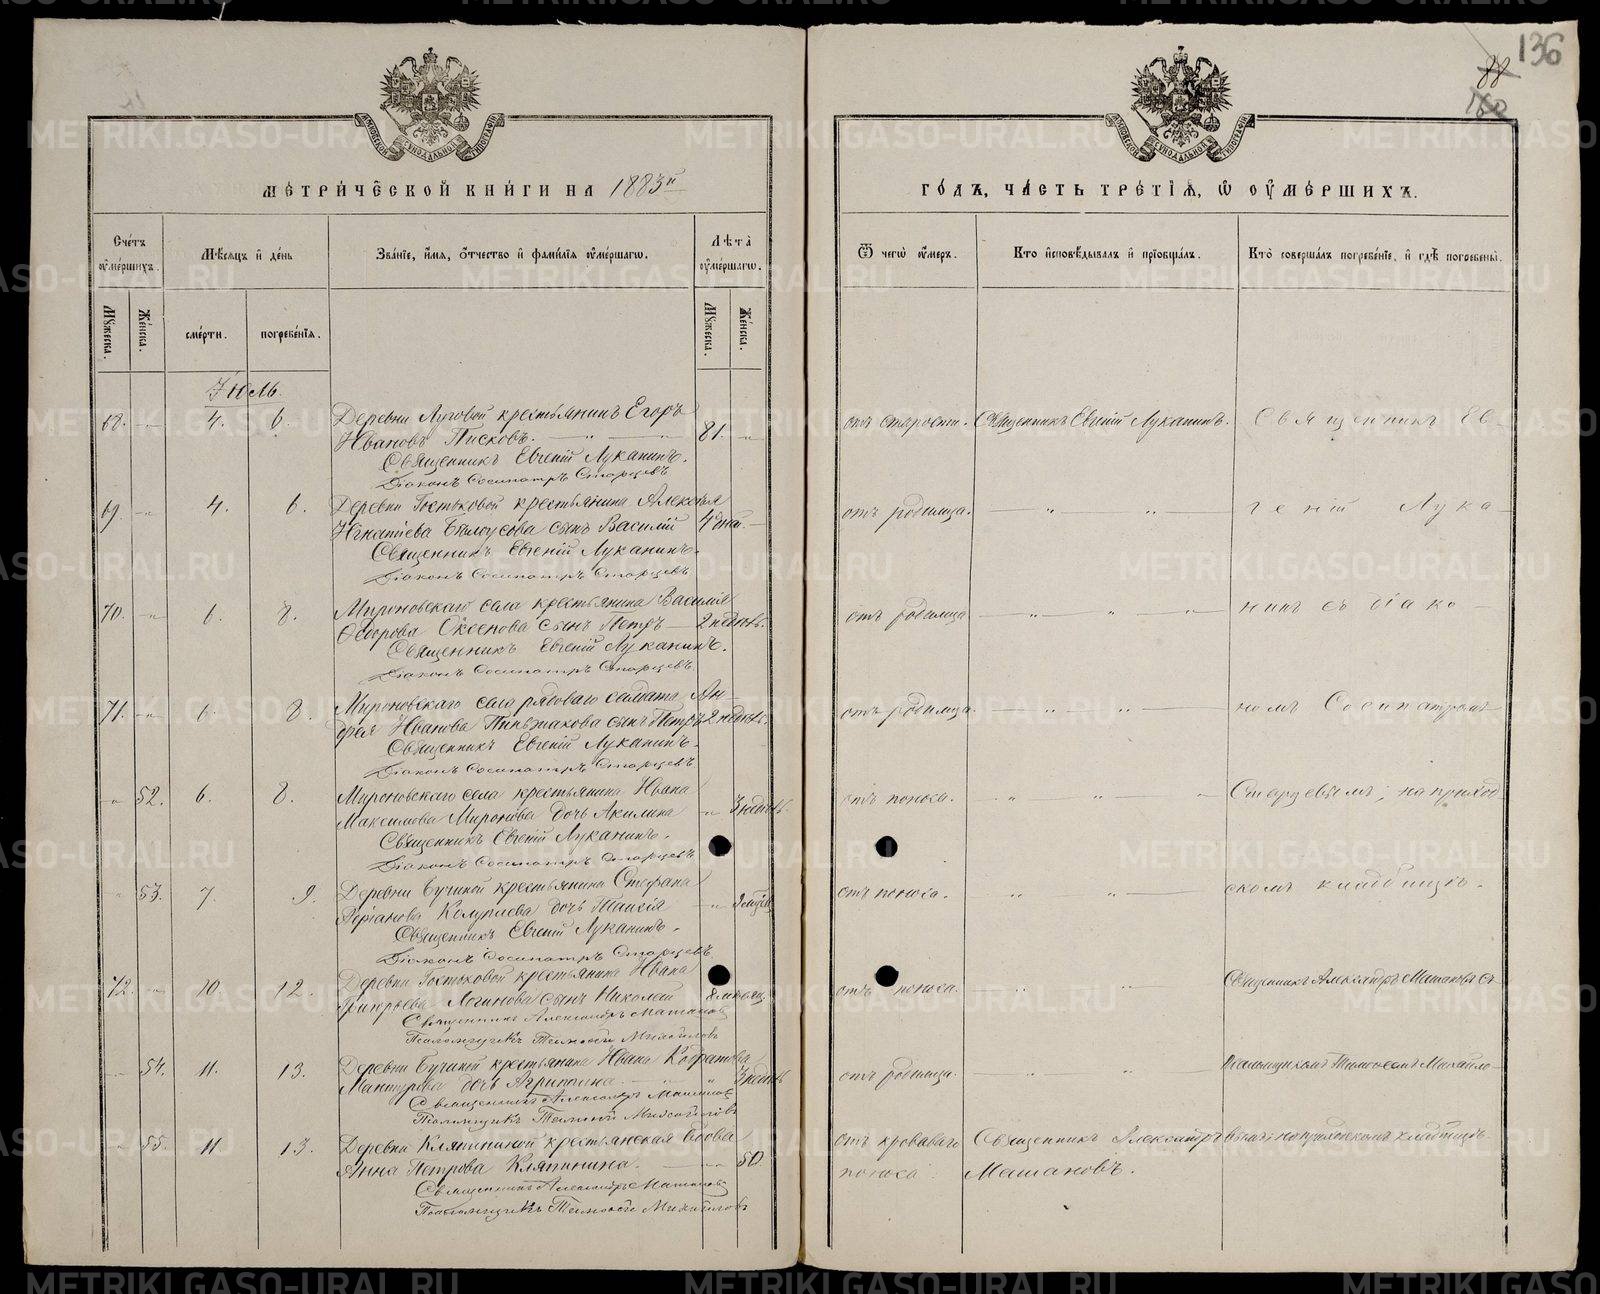 136
88
160
МЕТРИЧЕСКОЙ КНИГИ НА 1883й
ГОДЪ, ЧАСТЬ ТРЕТІЯ, Ѡ ОУМЕРШИХЪ.
Счетъ оумершихъ.
Мѣсяцъ и день
Званіе, имя, отчество и фамилія оумершагѡ.
Лѣта оумершагѡ.
Ѿ чегѡ оумеръ.
Кто исповѣдывалъ и пріобщалъ.
Кто совершалъ погребеніе, и гдѣ погребены.
Мужеска.
Женска.
смерти.
погребенія.
Мужеска.
Женска.
Іюль.
68. -"- 4. 6. Деревни Луговой крестьянинъ Егоръ
Ивановъ Писковъ. 81. "
отъ старости. Священникъ Евгеній Луканинъ. Священникъ Ев-
Священникъ Евгеній Луканинъ.
Діаконъ Сосипатръ Старцевъ
69. -"- 4. 6. Деревни Гостьковой крестьянина Алексѣя
Игнатіева Бѣлоусова сынъ Василій 4 дня.
отъ родимца. " " геній Лука-
Священникъ Евгеній Луканинъ.
Діаконъ Сосипатръ Старцевъ
70. -"- 6. 8. Мироновскаго села крестьянина Василія
Ѳеодорова Оксенова сынъ Петръ 2 недѣль.
отъ родимца " " " нинъ съ діако-
Священникъ Евгеній Луканинъ.
Діаконъ Сосипатръ Старцевъ
71. -"- 6. 8. Мироновскаго села рядоваго солдата Ан-
дрея Иванова Пиньжакова сынъ Петръ 2 недѣль.
отъ родимца. " " номъ Сосипатромъ
Священникъ Евгеній Луканинъ.
Діаконъ Сосипатръ Старцевъ
" 52. 6. 8. Мироновскаго села крестьянина Ивана
Максимова Миронова дочь Акилина " 3 недѣль.
отъ поноса. " " " Старцевымъ, на приход-
Священникъ Евгеній Луканинъ.
Діаконъ Сосипатръ Старцевъ
" 53. 7. 9. Деревни Бучиной крестьянина Стефана
Колупаева дочь Таисія "
отъ поноса. " " скомъ кладбищѣ.
Священникъ Евгеній Луканинъ.
Діаконъ Сосипатръ Старцевъ
72. " 10. 12. Деревни Гостьковой крестьянина Ивана
Григорьева Логинова сынъ Николай 8 мѣсяц.
отъ поноса. " " Священникъ Александръ Машановъ съ
Священникъ Александръ Машановъ
Псаломщикъ Тимоѳей Михайловъ
" 54. 11. 13. Деревни Бучиной крестьянина Ивана Кодратова
Мантурова дочь Агрипина " " 3 недѣль
отъ родимца. " " Псаломщикомъ Тимоѳеемъ Михайло-
Священникъ Александръ Машановъ
Псаломщикъ Тимоѳей Михайловъ
" 55. 11. 13. Деревни Кляпиной крестьянская вдова
Анна Петрова Кляпинина. " 50.
отъ кроваваго поноса. Священникъ Александръ Машановъ. вымъ; на приходскомъ кладбищѣ.
Священникъ Александръ Машановъ
Псаломщикъ Тимоѳей Михайловъ
METRIKI.GASO-URAL.RU